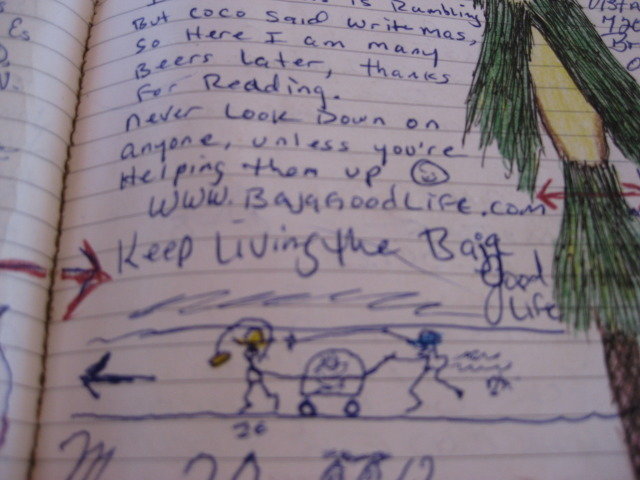 is Rambling
But Coco said write mas,
So Here I am many
Beers Later, thanks
For Redding.
Never Look Down on
anyone, unless you're
Helping them up
WWW.BajaGoodLife.com
Keep Living the Baja
Good
Life